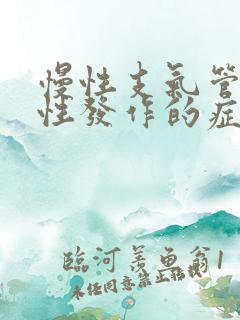 慢性支氣管
性發作的症
臨河羨魚翁1
未任同意禁止転找